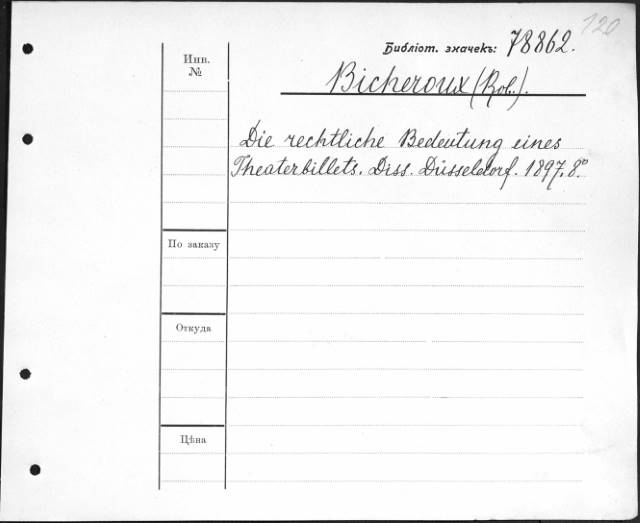 120
Библіот. значекъ: 78862.
Инв.
№
Bicheroux (Rob.).
Die rechtliche Bedeutung eines
Theaterbillets. Diss. Düsseldorf. 1897. 8°
По заказу
Откуда
Цѣна